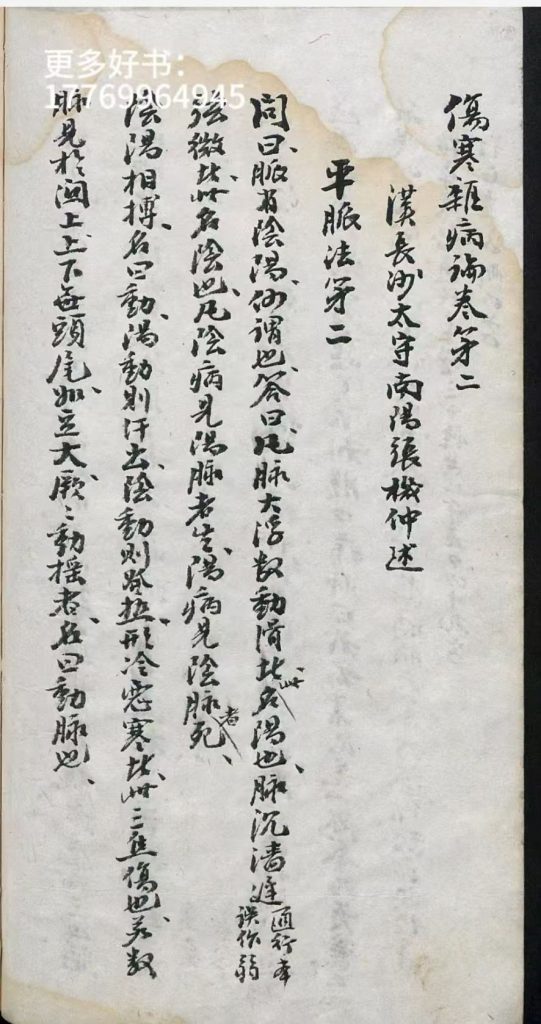 更多好书：
17769964945
傷寒雜病論卷第二
漢長沙太守南陽張機仲述
平脈法第二
問曰、脈有陰陽、何謂也、答曰、凡脉大浮數動滑者、此名陽也、脉沉濇遲通行本誤作弱
弦微者、此名陰也、凡陰病見陽脉者生、陽病見陰脉者死、
陰陽相搏、名曰動、陽動則汗出、陰動則發熱、形冷惡寒者、此三焦傷也、若數
脉見於關上、上下無頭尾、如豆大、厥々動搖者、名曰動脉也、